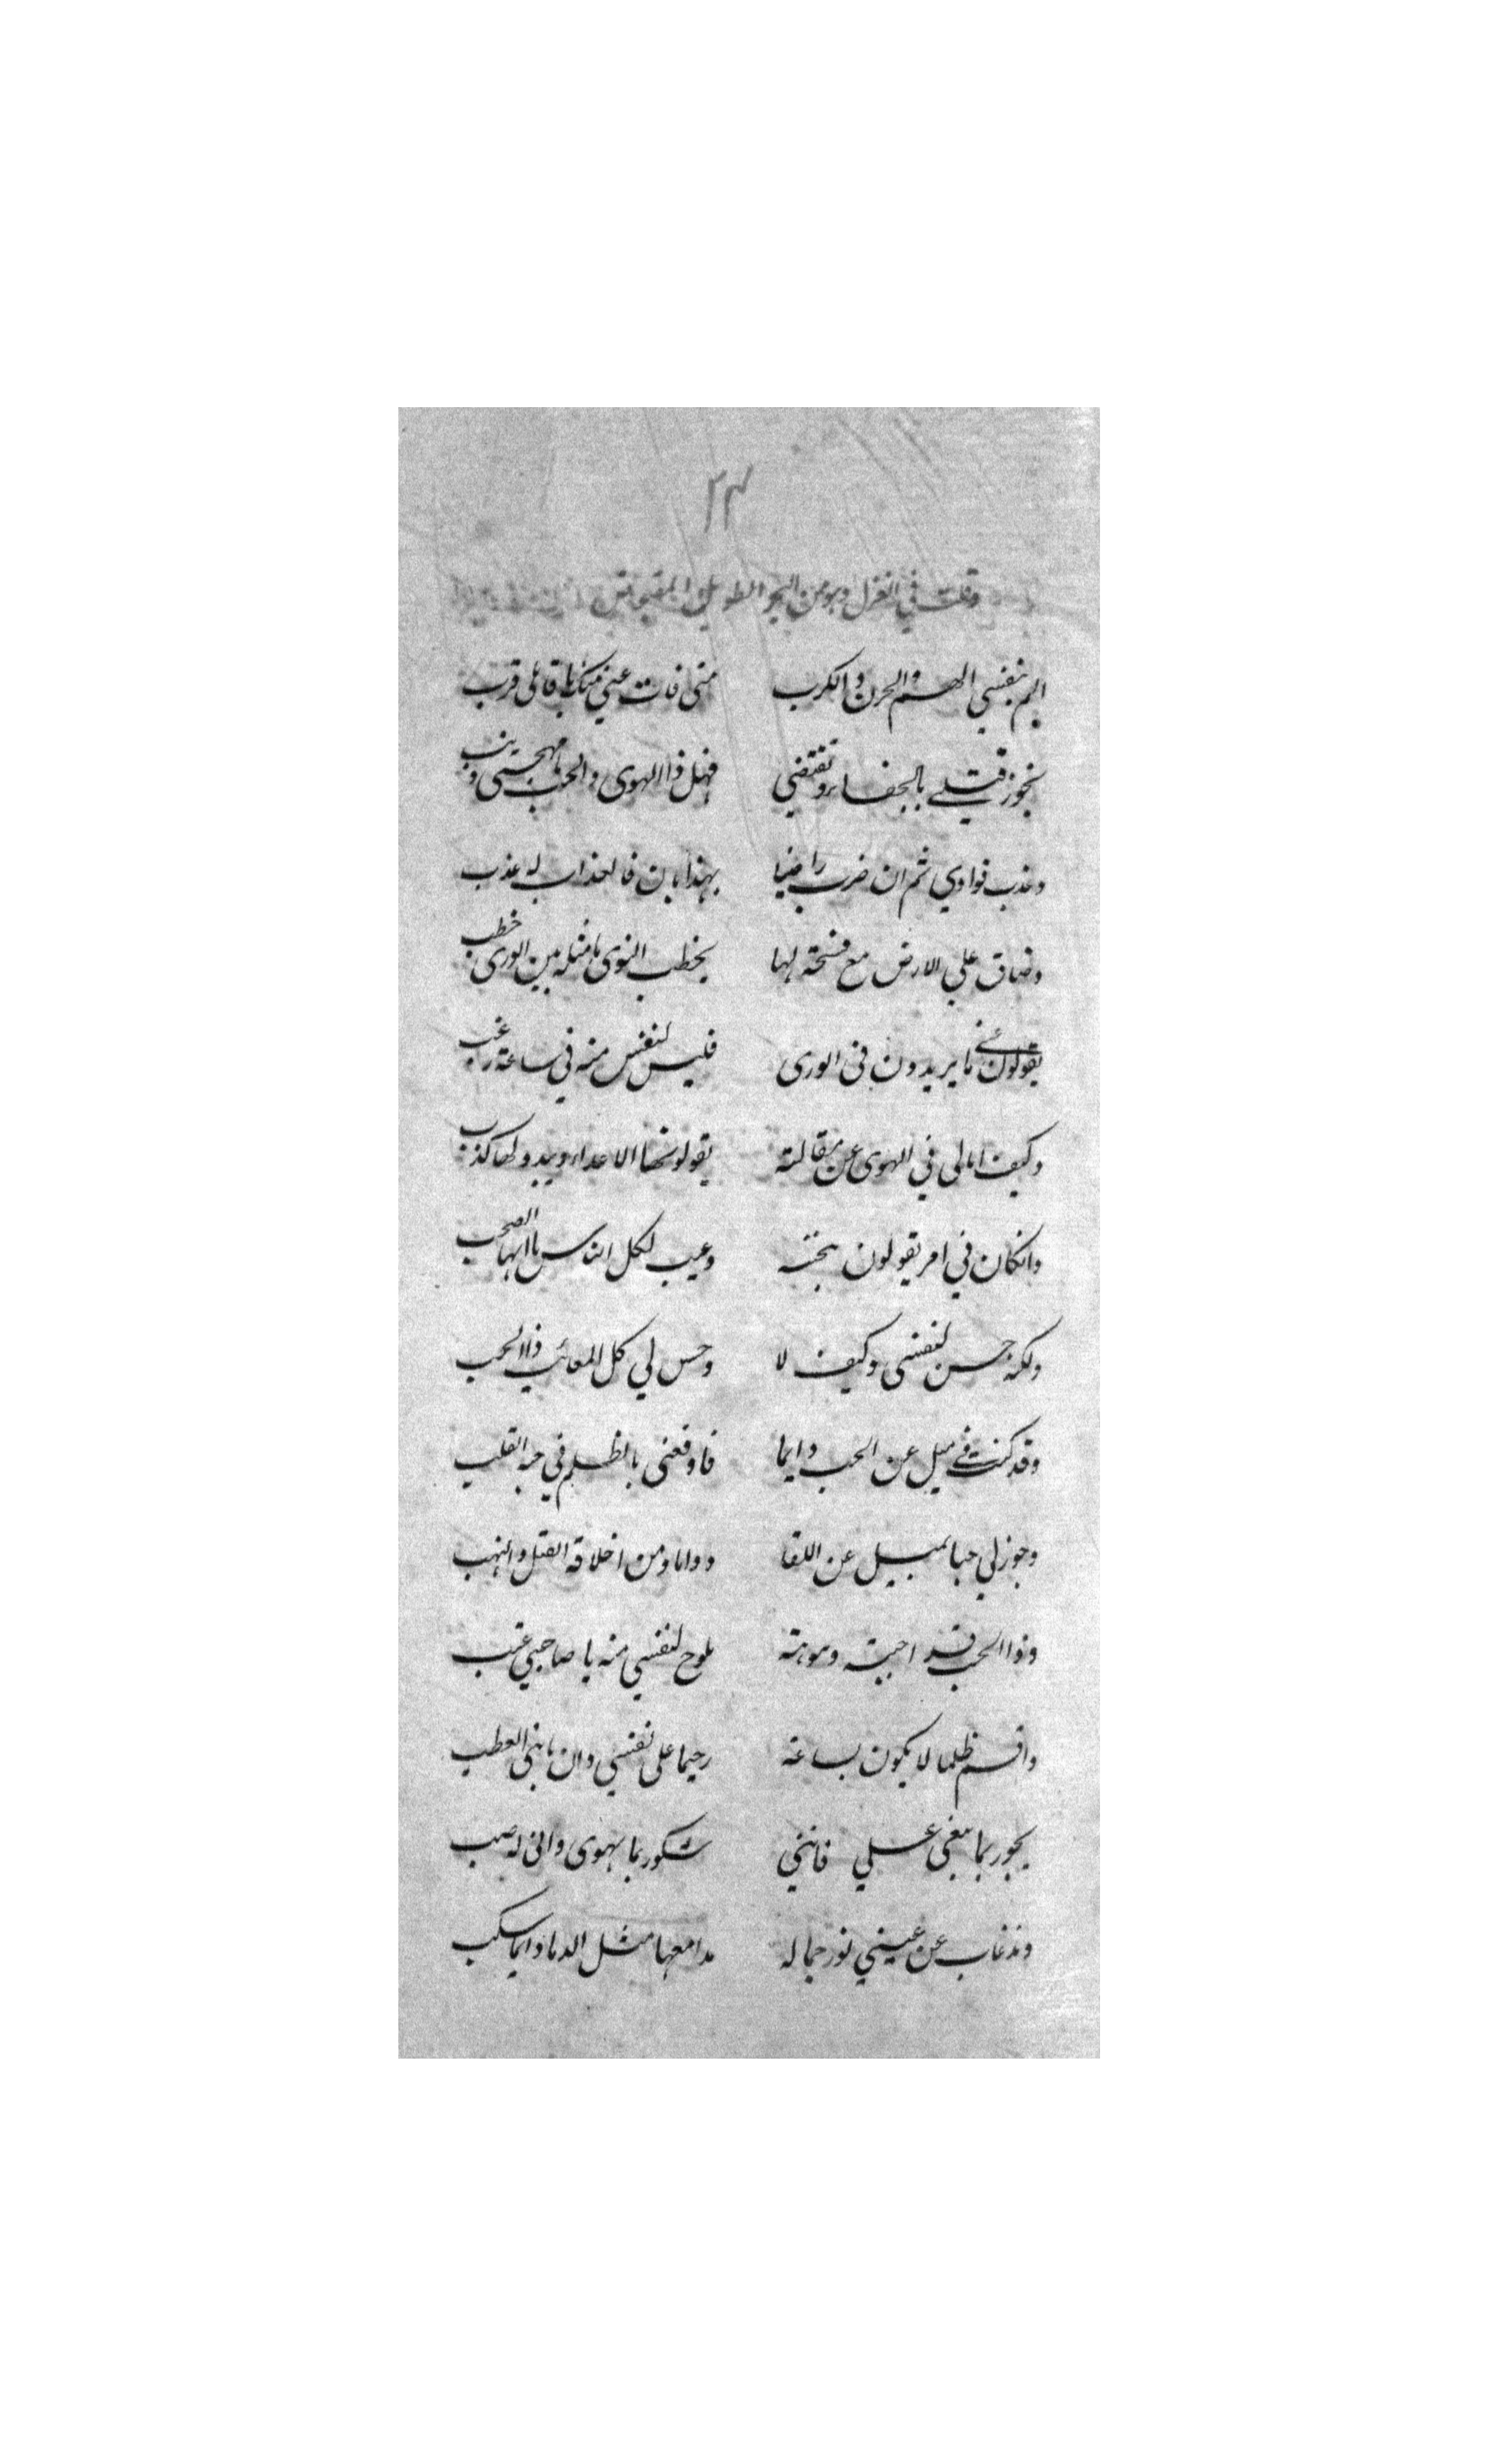 ٢٣
وقلت في الغزل وهو من البحر الطويل المقبوض
الم بنفسي الهم والحزن والكرب متى فات عيني منك يا قاتلي قرب
تجوز قتلي بالجفاء وتقتضي فهل ذا الهوى والحب يا مهجتي ذنب
وعذب فوادي ثم ان ضرب راضيا بهذا بان فالعذاب له عذب
وضاق علي الارض مع فسحة لها بخطب النوى ما مثله بين الورى خطب
يقولون عني ما يريدون في الورى فليس لنفس منه في ساعة رعب
وكيف ابالي في الهوى عن مقالة يقولونها الاعداء ويبدو لها كذب
وانكان في امر يقولون بحته وعيب لكل الناس يا ايها الصحب
ولكنه حسن لنفسي وكيف لا وحسن لي كل المعائب ذا الحب
وقد كنت في ميل عن الحب دايما فاوقعني بالظلم في حبه القلب
وجوز لي حبا يميل عن اللقا دواما ومن اخلاقه القتل والنهب
وذا الحب قد احببته وهويته يلوح لنفسي منه يا صاحبي عتب
واقسم ظلما لا يكون بساعة رحيما على نفسي وان نابني العطب
يجور بما يبغي علي فانني شكور بما يهوى واني له صب
ومذ غاب عن عيني نور جماله مدامعها مثل الدما دايما سكب